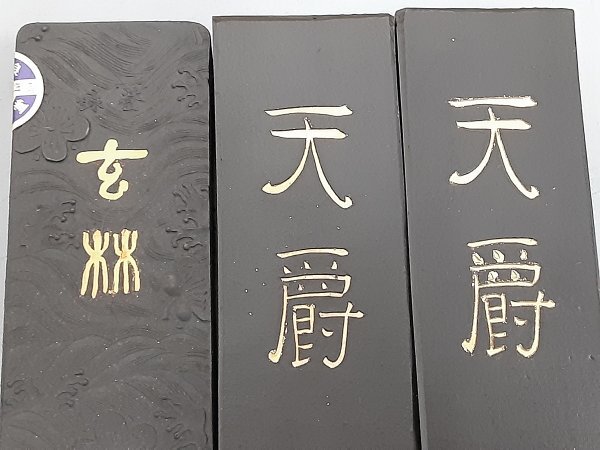 玄林
天爵
天爵